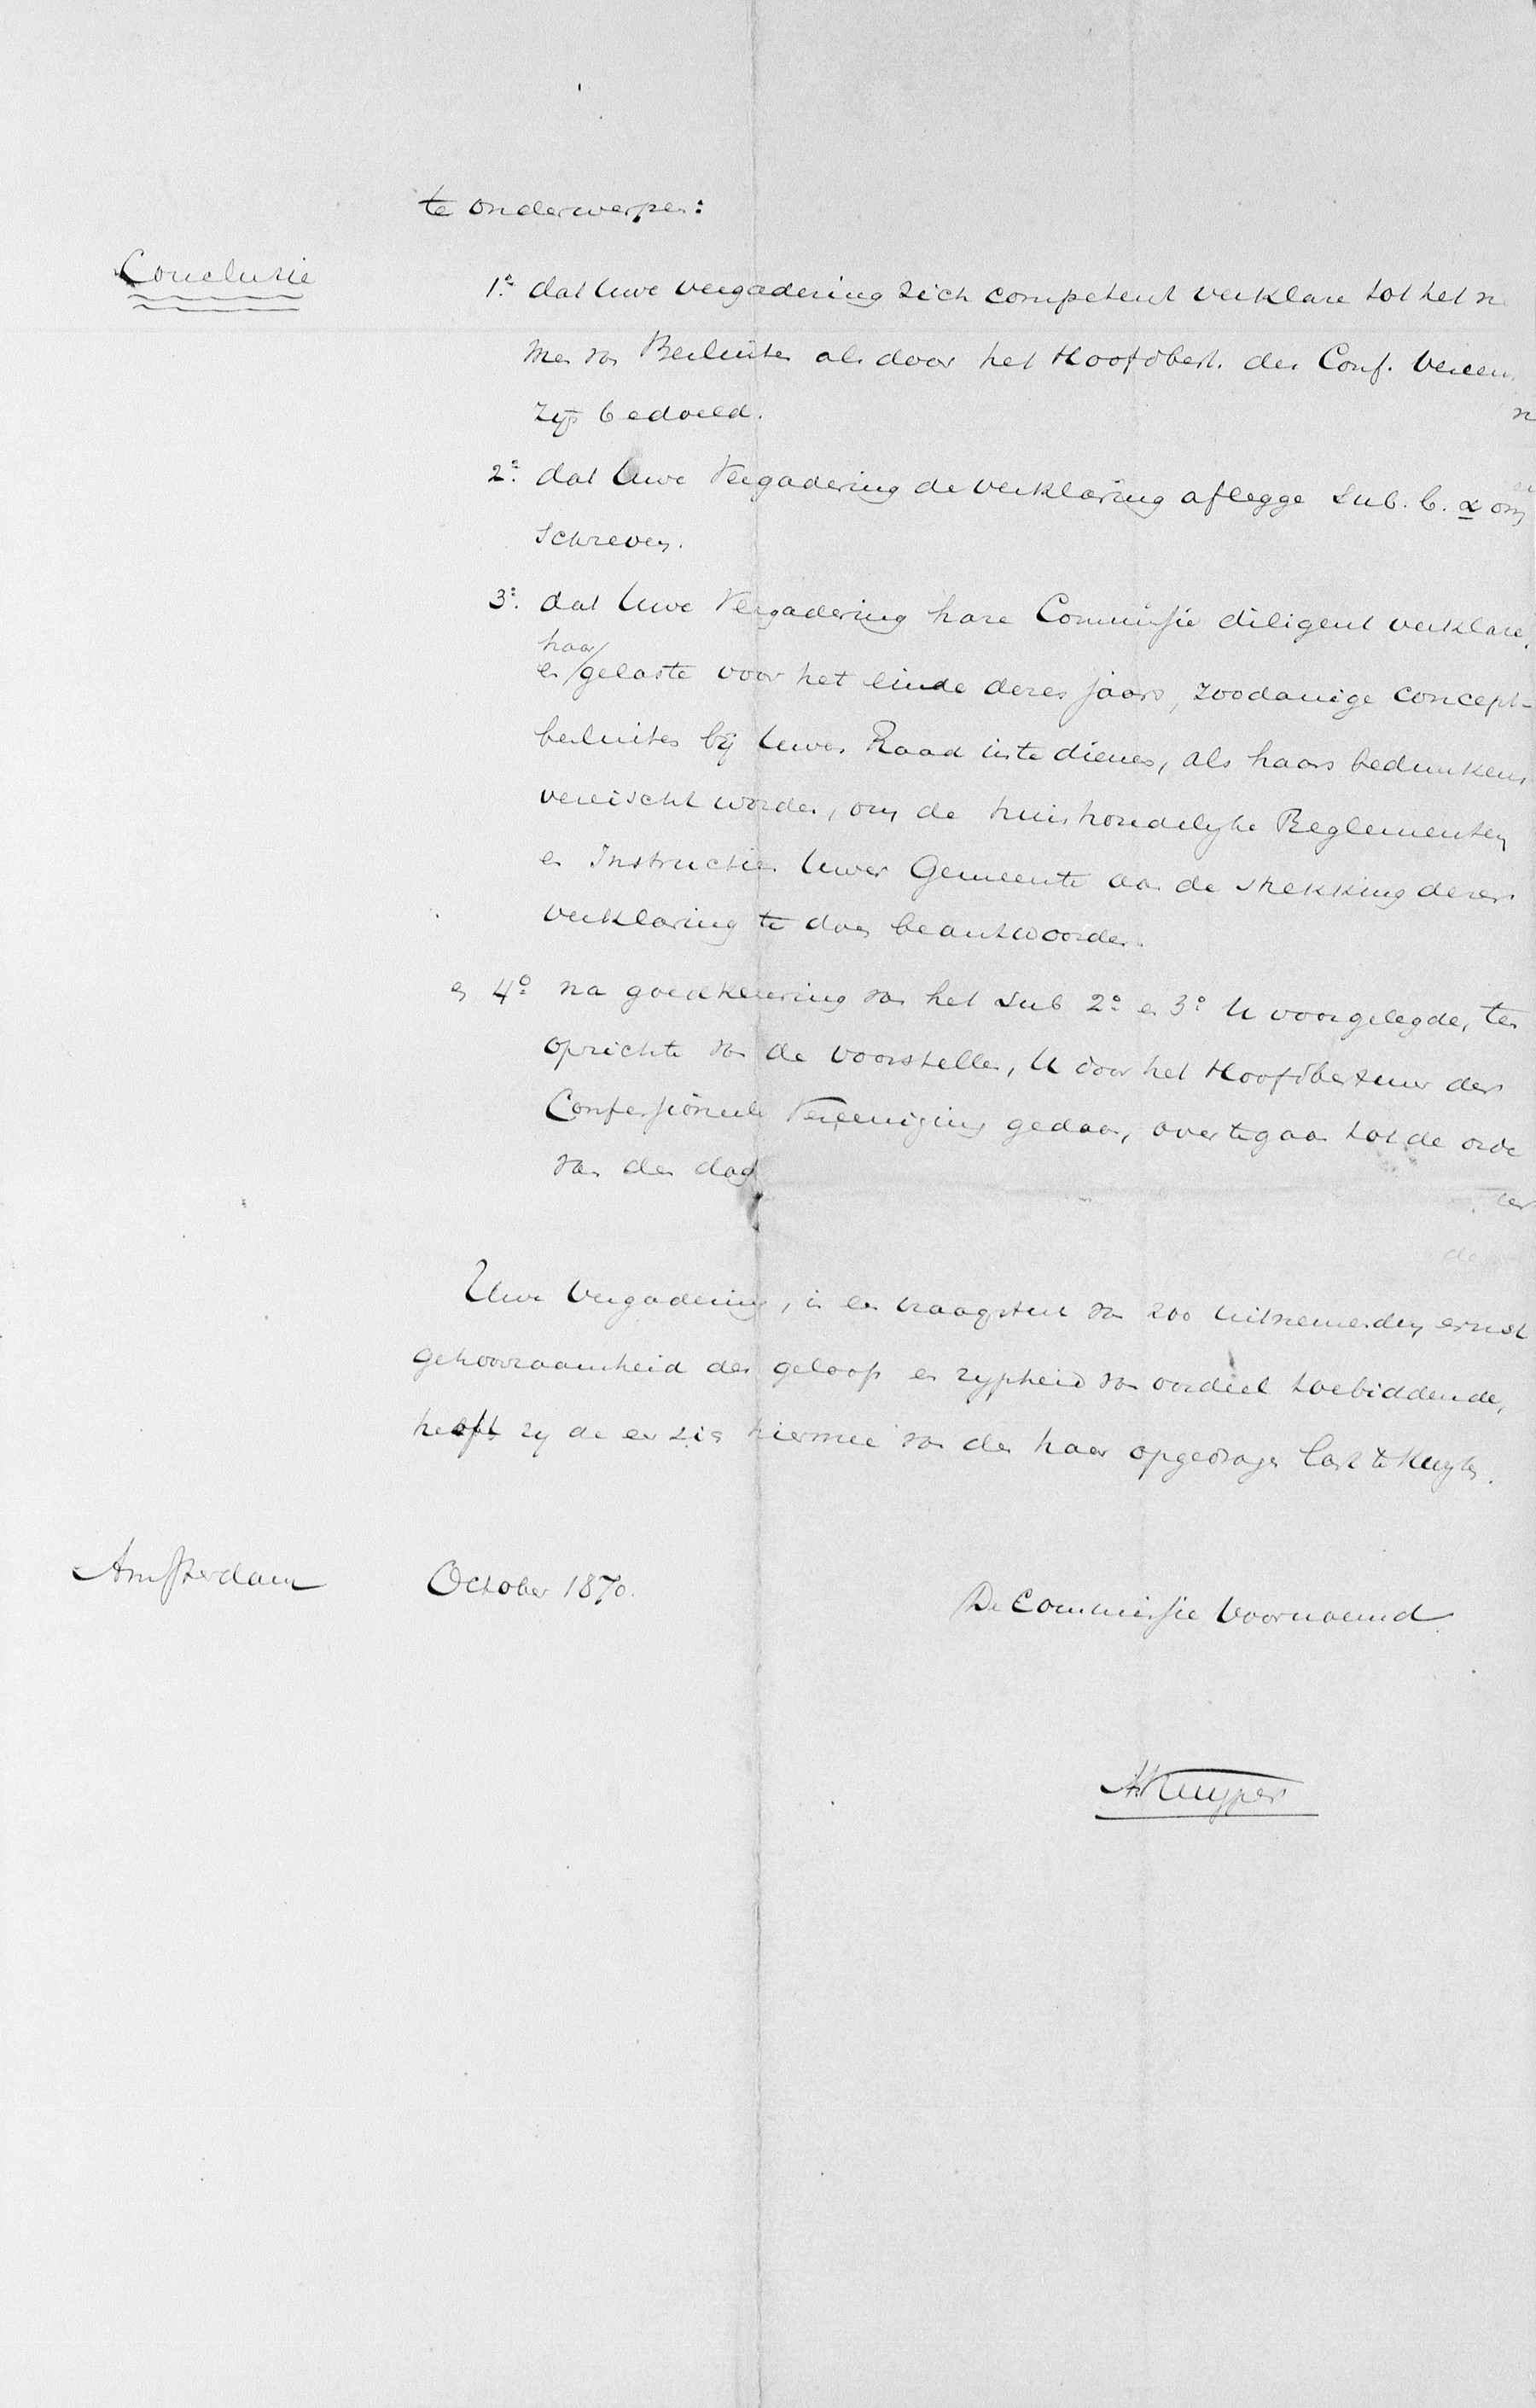 te onderwerpen:
Conclusie
1.° dat Uwe vergadering zich competent verklare tot het ne
men van Besluiten als door het Hoofdbest. der Conf. Vereen.
zijn bedoeld.
2.° dat Uwe Vergadering de verklaring aflegge sub. b. α om
schreven.
3.° dat Uwe Vergadering hare Commissie diligent verklare,
haar
en /gelaste voor het einde dezes jaars, zoodanige concept-
besluiten bij Uwen Raad in te dienen, als haars bedunkens
vereischt worden, om de huishoudelyke Reglementen
en Instructien Uwer Gemeente aan de strekking dezer
verklaring te doen beantwoorden.
en 4° na goedkeuring van het sub 2° en 3° U voorgelegde, ten
opzichte van de voorstellen, U door het Hoofdbestuur der
Confessioneele Vereeniging gedaan, over te gaan tot de orde
van den dag
Uwe Vergadering, in een vraagstuk van zoo uitnemenden ernst
gehoorzaamheid des geloofs en rypheid van oordeel toebiddende,
heeft zy de eer zich hiermee van den haar opgedragen last te kwyten.
Amsterdam October 1870.
De Commissie voornoemd.
A Kuyper